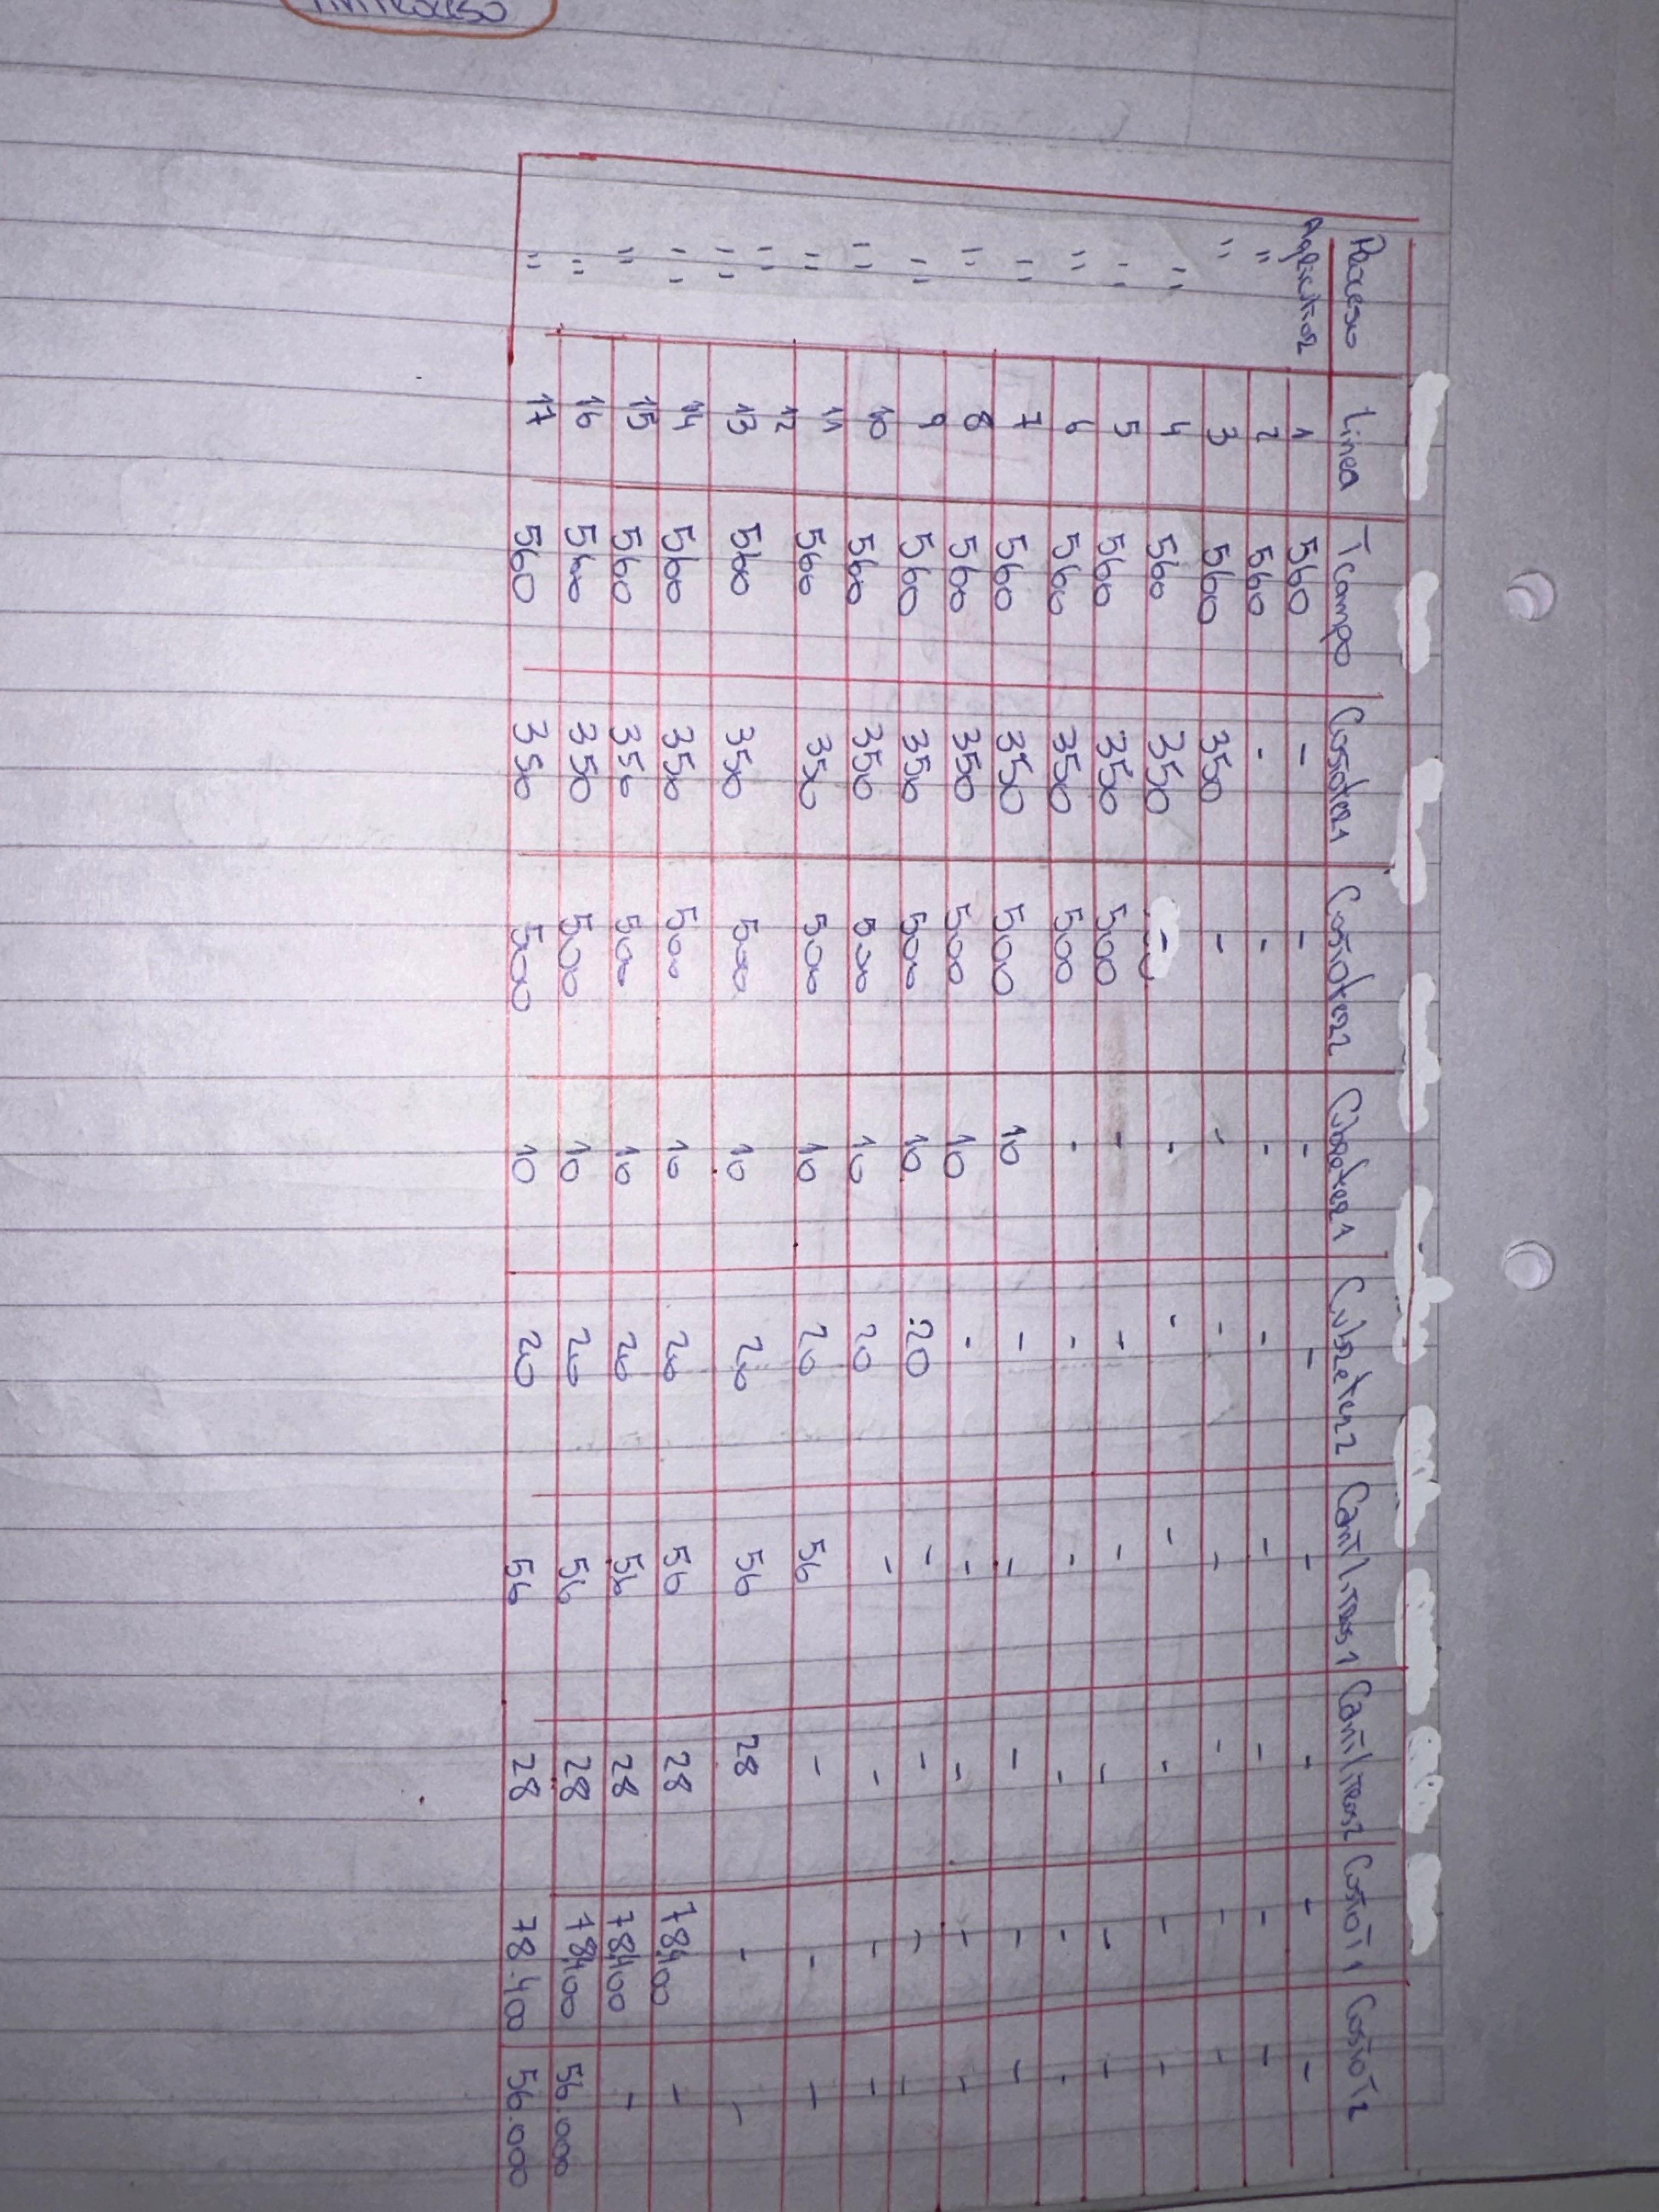 Proceso Linea Tcampo Costoter1 Costoter2 Cubreter1 Cubreter2 CantLitros1 CantLitros2 CostoT1 CostoT2
Agricultor 1 560 - - - - - - - -
" 2 560 - - - - - - - -
" 3 560 350 - - - - - - -
" 4 560 350 - - - - - - -
" 5 560 350 500 - - - - - -
" 6 560 350 500 - - - - - -
" 7 560 350 500 10 - - - - -
" 8 560 350 500 10 - - - - -
" 9 560 350 500 10 20 - - - -
" 10 560 350 500 10 20 - - - -
" 11 560 350 500 10 20 56 - - -
" 12
" 13 560 350 500 10 20 56 28 - -
" 14 560 350 500 10 20 56 28 78,400 -
" 15 560 350 500 10 20 56 28 78,400 -
" 16 560 350 500 10 20 56 28 78,400 56.000
" 17 560 350 500 10 20 56 28 78.400 56.000